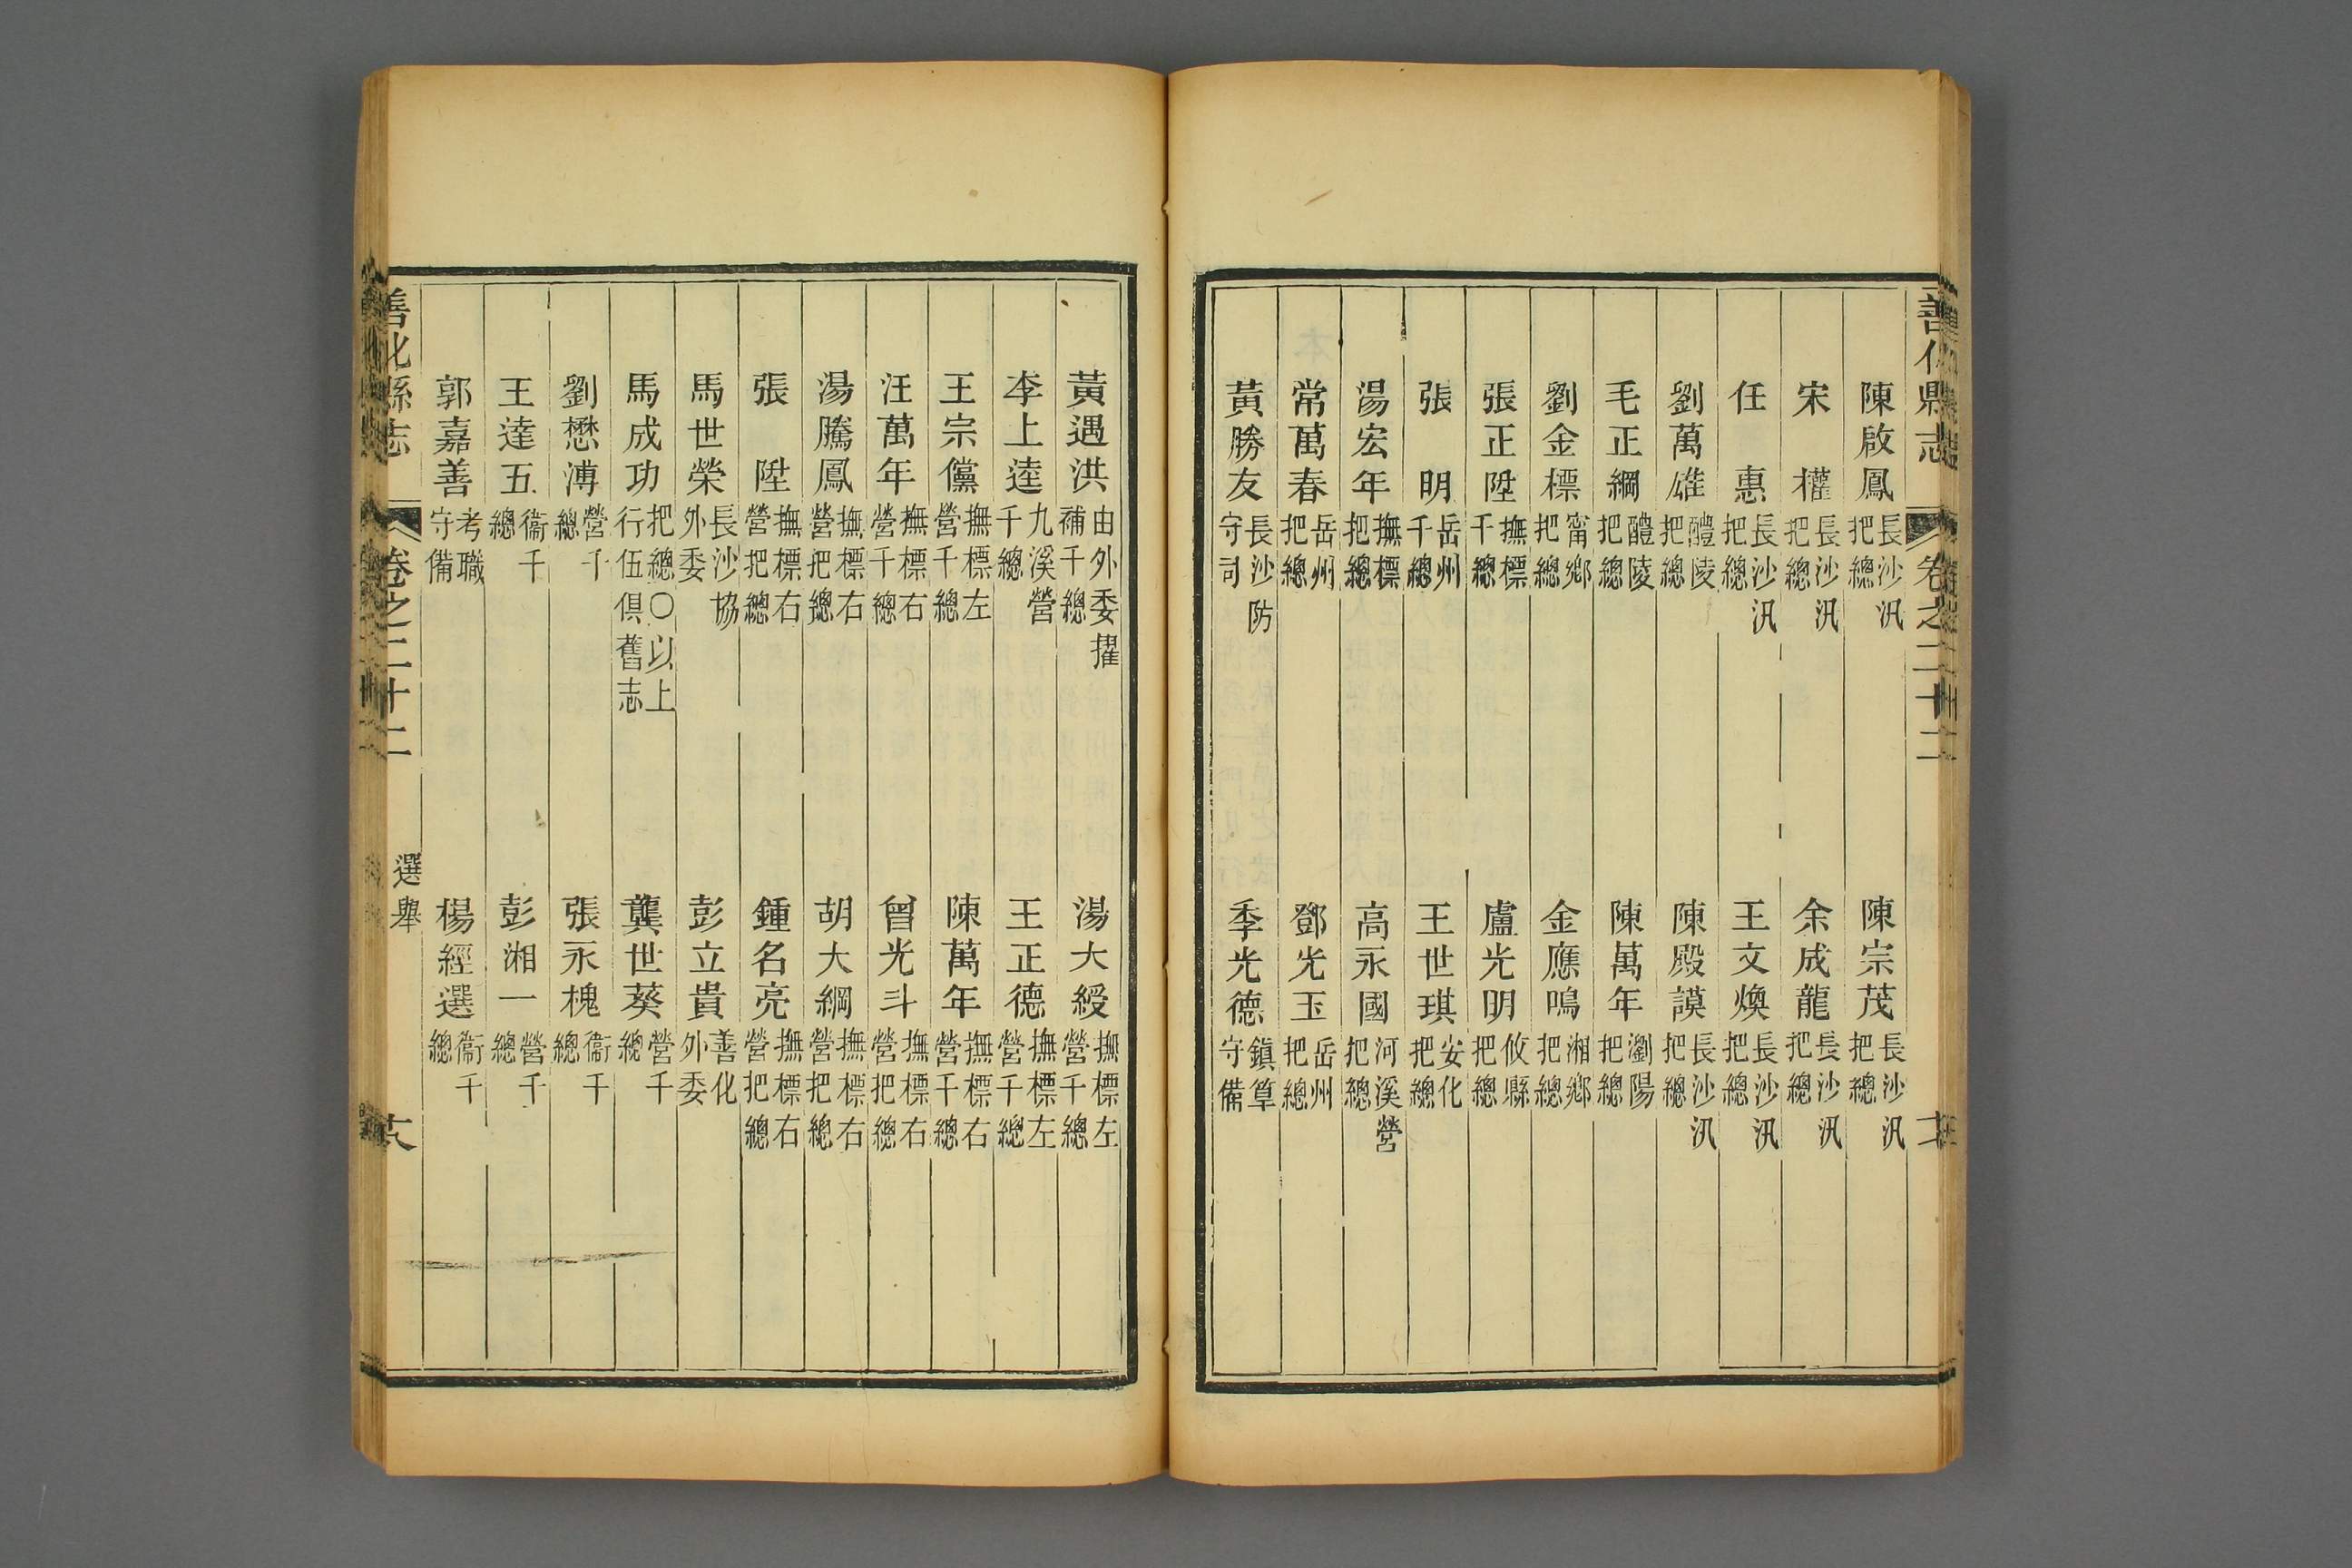 善化縣志 卷之二十二
陳啟鳳 長沙汛把總 陳宗茂 長沙汛把總
宋權 長沙汛把總 余成龍 長沙汛把總
任惠 長沙汛把總 王文煥 長沙汛把總
劉萬雄 醴陵把總 陳殿謨 長沙汛把總
毛正綱 醴陵把總 陳萬年 瀏陽把總
劉金標 甯鄉把總 金應鳴 湘鄉把總
張正陞 撫標千總 盧光明 攸縣把總
張明 岳州千總 王世琪 安化把總
湯宏年 撫標把總 高永國 河溪營把總
常萬春 岳州把總 鄧光玉 岳州把總
黃勝友 長沙防守司 季光德 鎮篁守備
黃遇洪 由外委擢補千總 湯大綬 撫標左營千總
李上逵 九溪營千總 王正德 撫標左營千總
王宗儻 撫標左營千總 陳萬年 撫標右營千總
汪萬年 撫標右營千總 曾光斗 撫標右營把總
湯騰鳳 撫標右營把總 胡大綱 撫標右營把總
張陞 撫標右營把總 鍾名亮 撫標右營把總
馬世榮 長沙協外委 彭立貴 善化外委
馬成功 把總○以上行伍俱舊志 龔世葵 營千總
劉懋溥 營千總 張永槐 衞千總
王達五 衞千總 彭湘一 營千總
郭嘉善 考職守備 楊經選 衞千總
善化縣志 卷之二十二 選舉